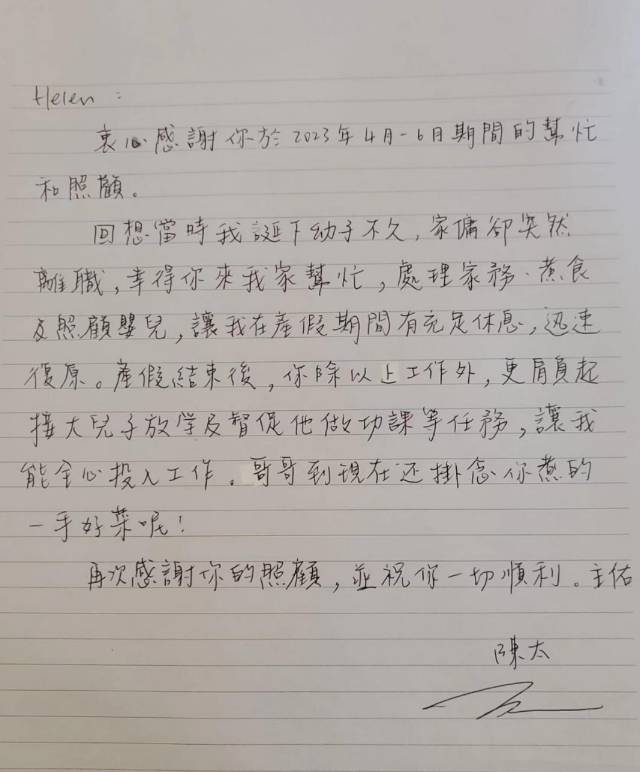 Helen :
衷心感謝你於2023年4月-6月期間的幫忙
和照顧。
回想當時我誕下幼子不久，家傭卻突然
離職，幸得你來我家幫忙，處理家務、煮食
及照顧嬰兒，讓我在產假期間有充足休息，迅速
復原。產假結束後，你除以上工作外，更肩負起
接大兒子放学及督促他做功課等任務，讓我
能全心投入工作。哥哥到現在还掛念你煮的
一手好菜呢！
再次感謝你的照顧，並祝你一切順利。主佑
陳太